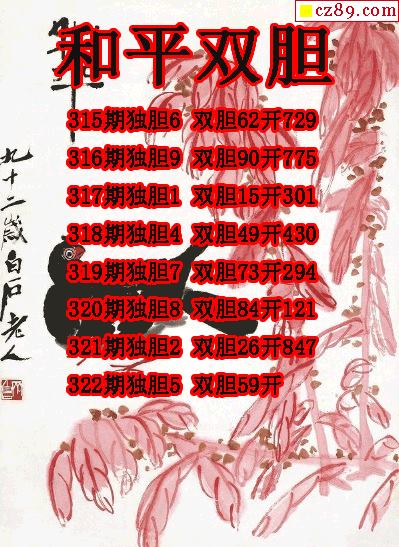 cz89.com
和平双胆
315期独胆6 双胆62开729
316期独胆9 双胆90开775
317期独胆1 双胆15开301
318期独胆4 双胆49开430
319期独胆7 双胆73开294
320期独胆8 双胆84开121
321期独胆2 双胆26开847
322期独胆5 双胆59开
九十二岁白石老人